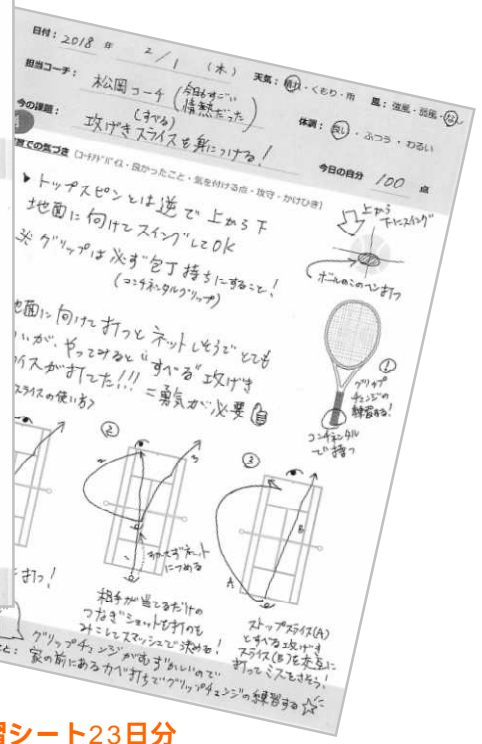 日付: 2018 年 2/1 (木) 天気: 晴れ・くもり・雨 風: 強風・弱風・なし
担当コーチ: 松岡コーチ (今日もすごい情熱だった) 体調: 良し・ふつう・わるい
今の課題: 攻げきスライス(すべる)を身につける! 今日の自分 100 点
での気づき (コーチアドバイス・良かったこと・気を付ける点・攻守・かけひき)
▶トップスピンとは逆で上から下
地面に向けてスイングしてOK
※グリップは必ず包丁持ちにすること!
(コンチネンタルグリップ)
上から
下にスイング
ボールのこのヘン打つ
地面に向けて打つとネットしそうでとても
いが、やってみると"すべる"攻げき
イスが打てた!!! =勇気が必要
スライスの使い方>
①
グリップ
チェンジの
練習する!
コンチネンタル
で持つ
打つ!
②
すかさずネット
につめる
相手が当てるだけの
つなぎショットを打つのを
みこしてスマッシュで決める!
③
A
B
ストップスライス(A)
とすべる攻げき
スライス(B)を交互に
打ってミスをさそう!
グリップチェンジがむずかしいので
と: 家の前にあるカベ打ちでグリップチェンジの練習する☆
習シート23日分